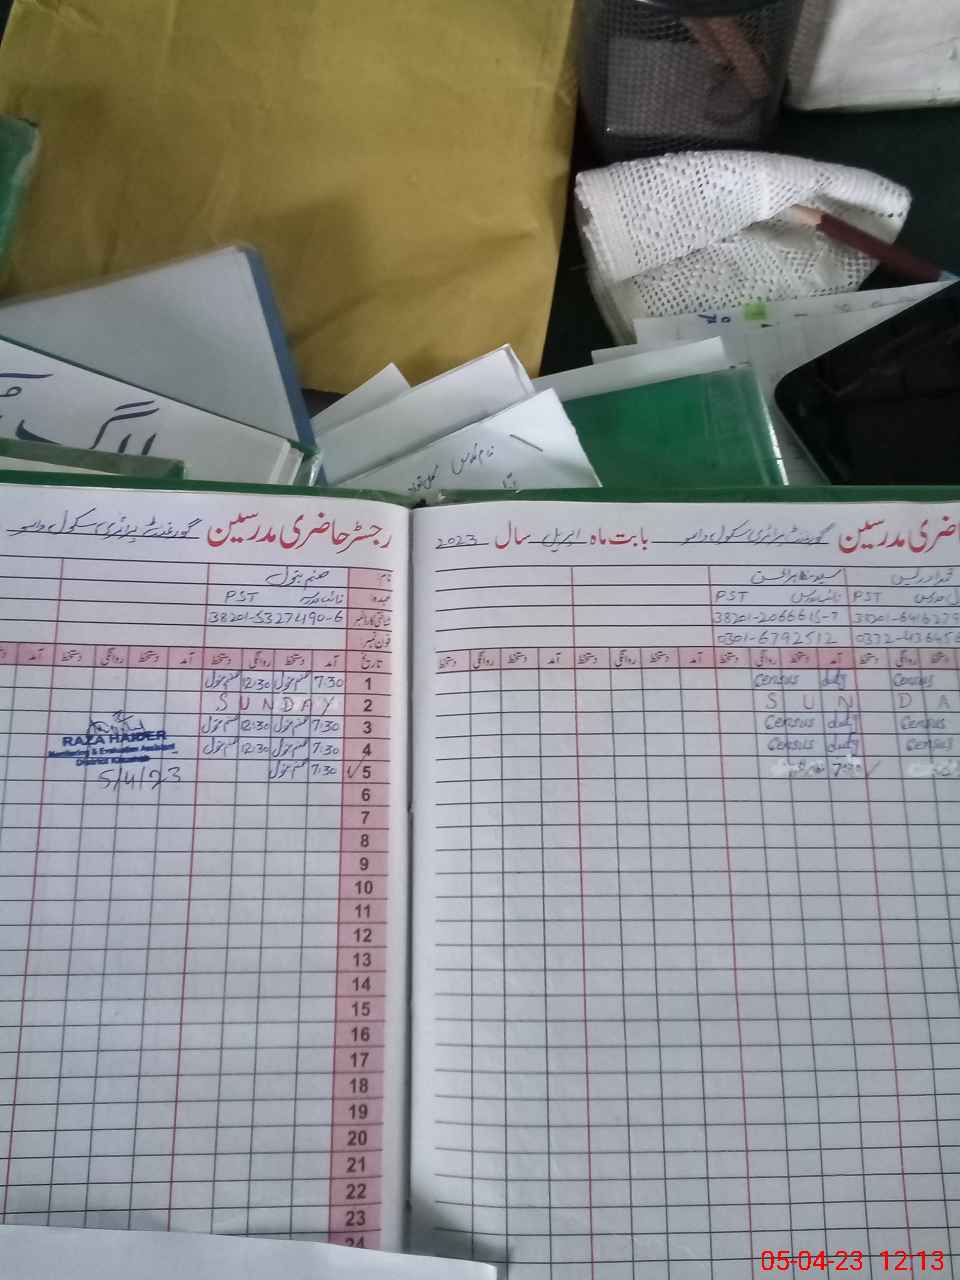 رجسٹر حاضری مدرسین گورنمنٹ پرائمری سکول
نام صنم بتول
عہدہ PST
شناختی کارڈ نمبر 38201-5327490-6
فون نمبر
تاریخ آمد دستخط روانگی دستخط آمد دستخط روانگی دستخط آمد
1 7:30 صنم بتول 12:30 صنم بتول
2 SUNDAY
3 7:30 صنم بتول 12:30 صنم بتول
4 7:30 صنم بتول 12:30 صنم بتول
5 7:30 صنم بتول
RAZA HAIDER
Monitoring & Evaluation Assistant
District Khushab
5/4/23
6
7
8
9
10
11
12
13
14
15
16
17
18
19
20
21
22
23
24
حاضری مدرسین گورنمنٹ پرائمری سکول بابت ماہ اپریل سال 2023
PST PST
38201-6416279 38201-2066615-7
0332-436456 0301-6792512
دستخط روانگی دستخط آمد دستخط روانگی دستخط آمد دستخط روانگی دستخط
Census Census duty
SUNDA
Census Census duty
Census Census duty
05-04-23 12:13